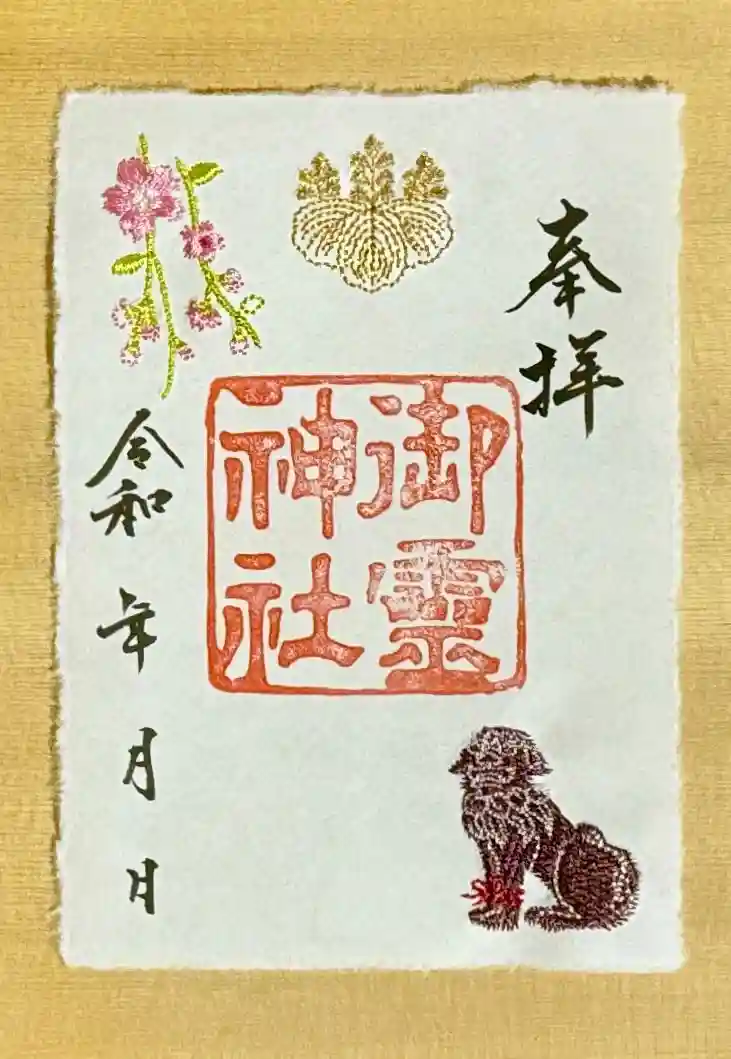 奉拝
御靈
神社
令和 年 月 日